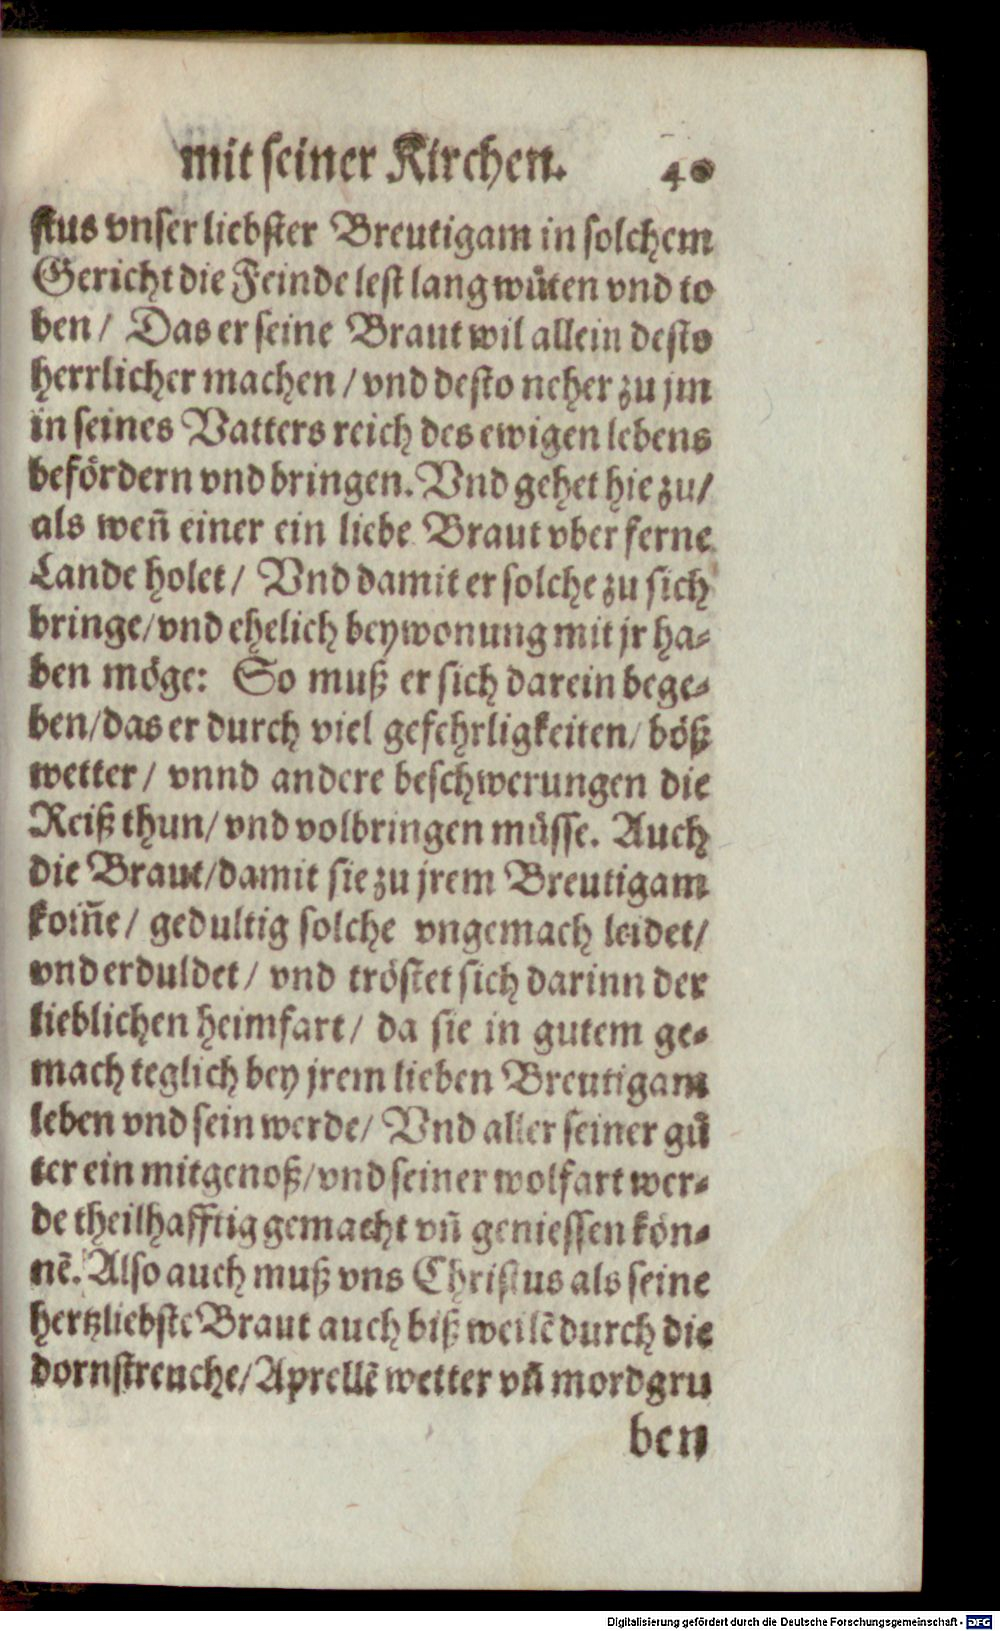 mit seiner Kirchen. 40
stus vnser liebster Breutigam in solchem
Gericht die Feinde lest lang wüten vnd to
ben / Das er seine Braut wil allein desto
herrlicher machen / vnd desto neher zu jm
in seines Vatters reich des ewigen lebens
befördern vnd bringen. Vnd gehet hie zu /
als weñ einer ein liebe Braut vber ferne
Lande holet / Vnd damit er solche zu sich
bringe / vnd ehelich beywonung mit jr ha-
ben möge: So muß er sich darein bege-
ben / das er durch viel gefehrligkeiten / böß
wetter / vnnd andere beschwerungen die
Reiß thun / vnd volbringen müsse. Auch
die Braut / damit sie zu jrem Breutigam
kom̃e / gedultig solche vngemach leidet /
vnd erduldet / vnd tröstet sich darinn der
lieblichen heimfart / da sie in gutem ge-
mach teglich bey jrem lieben Breutigam
leben vnd sein werde / Vnd aller seiner gü
ter ein mitgenoß / vnd seiner wolfart wer-
de theilhafftig gemacht vñ geniessen kön-
nẽ. Also auch muß vns Christus als seine
hertzliebste Braut auch biß weilẽ durch die
dornstreuche / Aprellẽ wetter vñ mordgru
ben
Digitalisierung gefördert durch die Deutsche Forschungsgemeinschaft - DFG